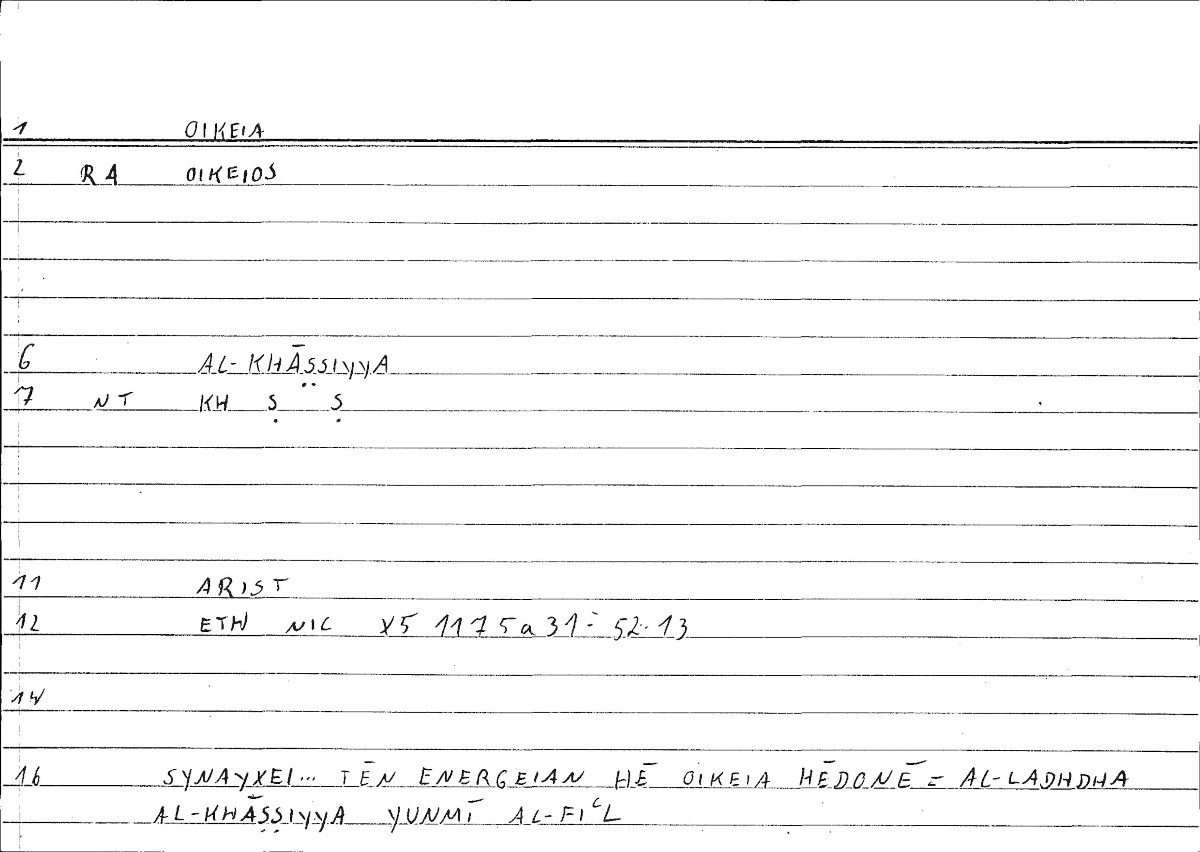 1 OIKEIA
2 R4 OIKEIOS
6 AL-KHĀṢṢIYYA
7 NT KH Ṣ Ṣ
11 ARIST
12 ETH NIC X5 1175a31 = 52.13
14
16 SYNAYXEI... TĒN ENERGEIAN HĒ OIKEIA HĒDONĒ = AL-LADHDHA
AL-KHĀṢṢIYYA YUNMĪ AL-FIʿL